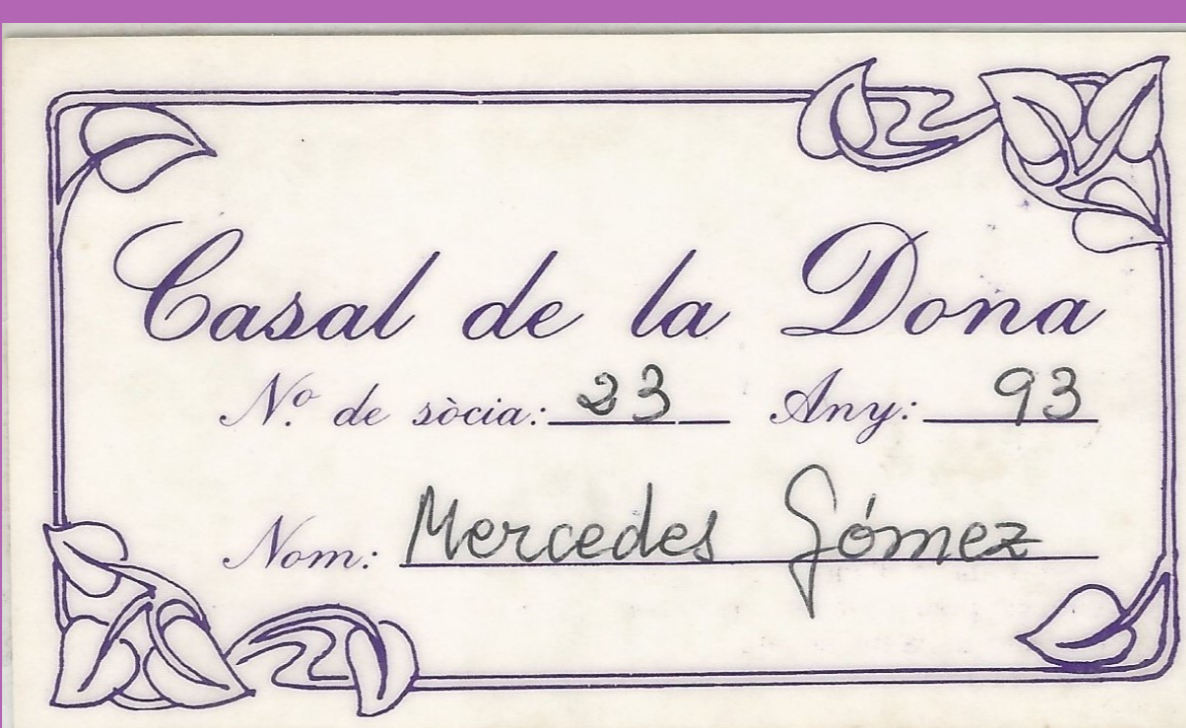 Casal de la Dona
Nº de sòcia: 23 Any: 93
Nom: Mercedes Gómez